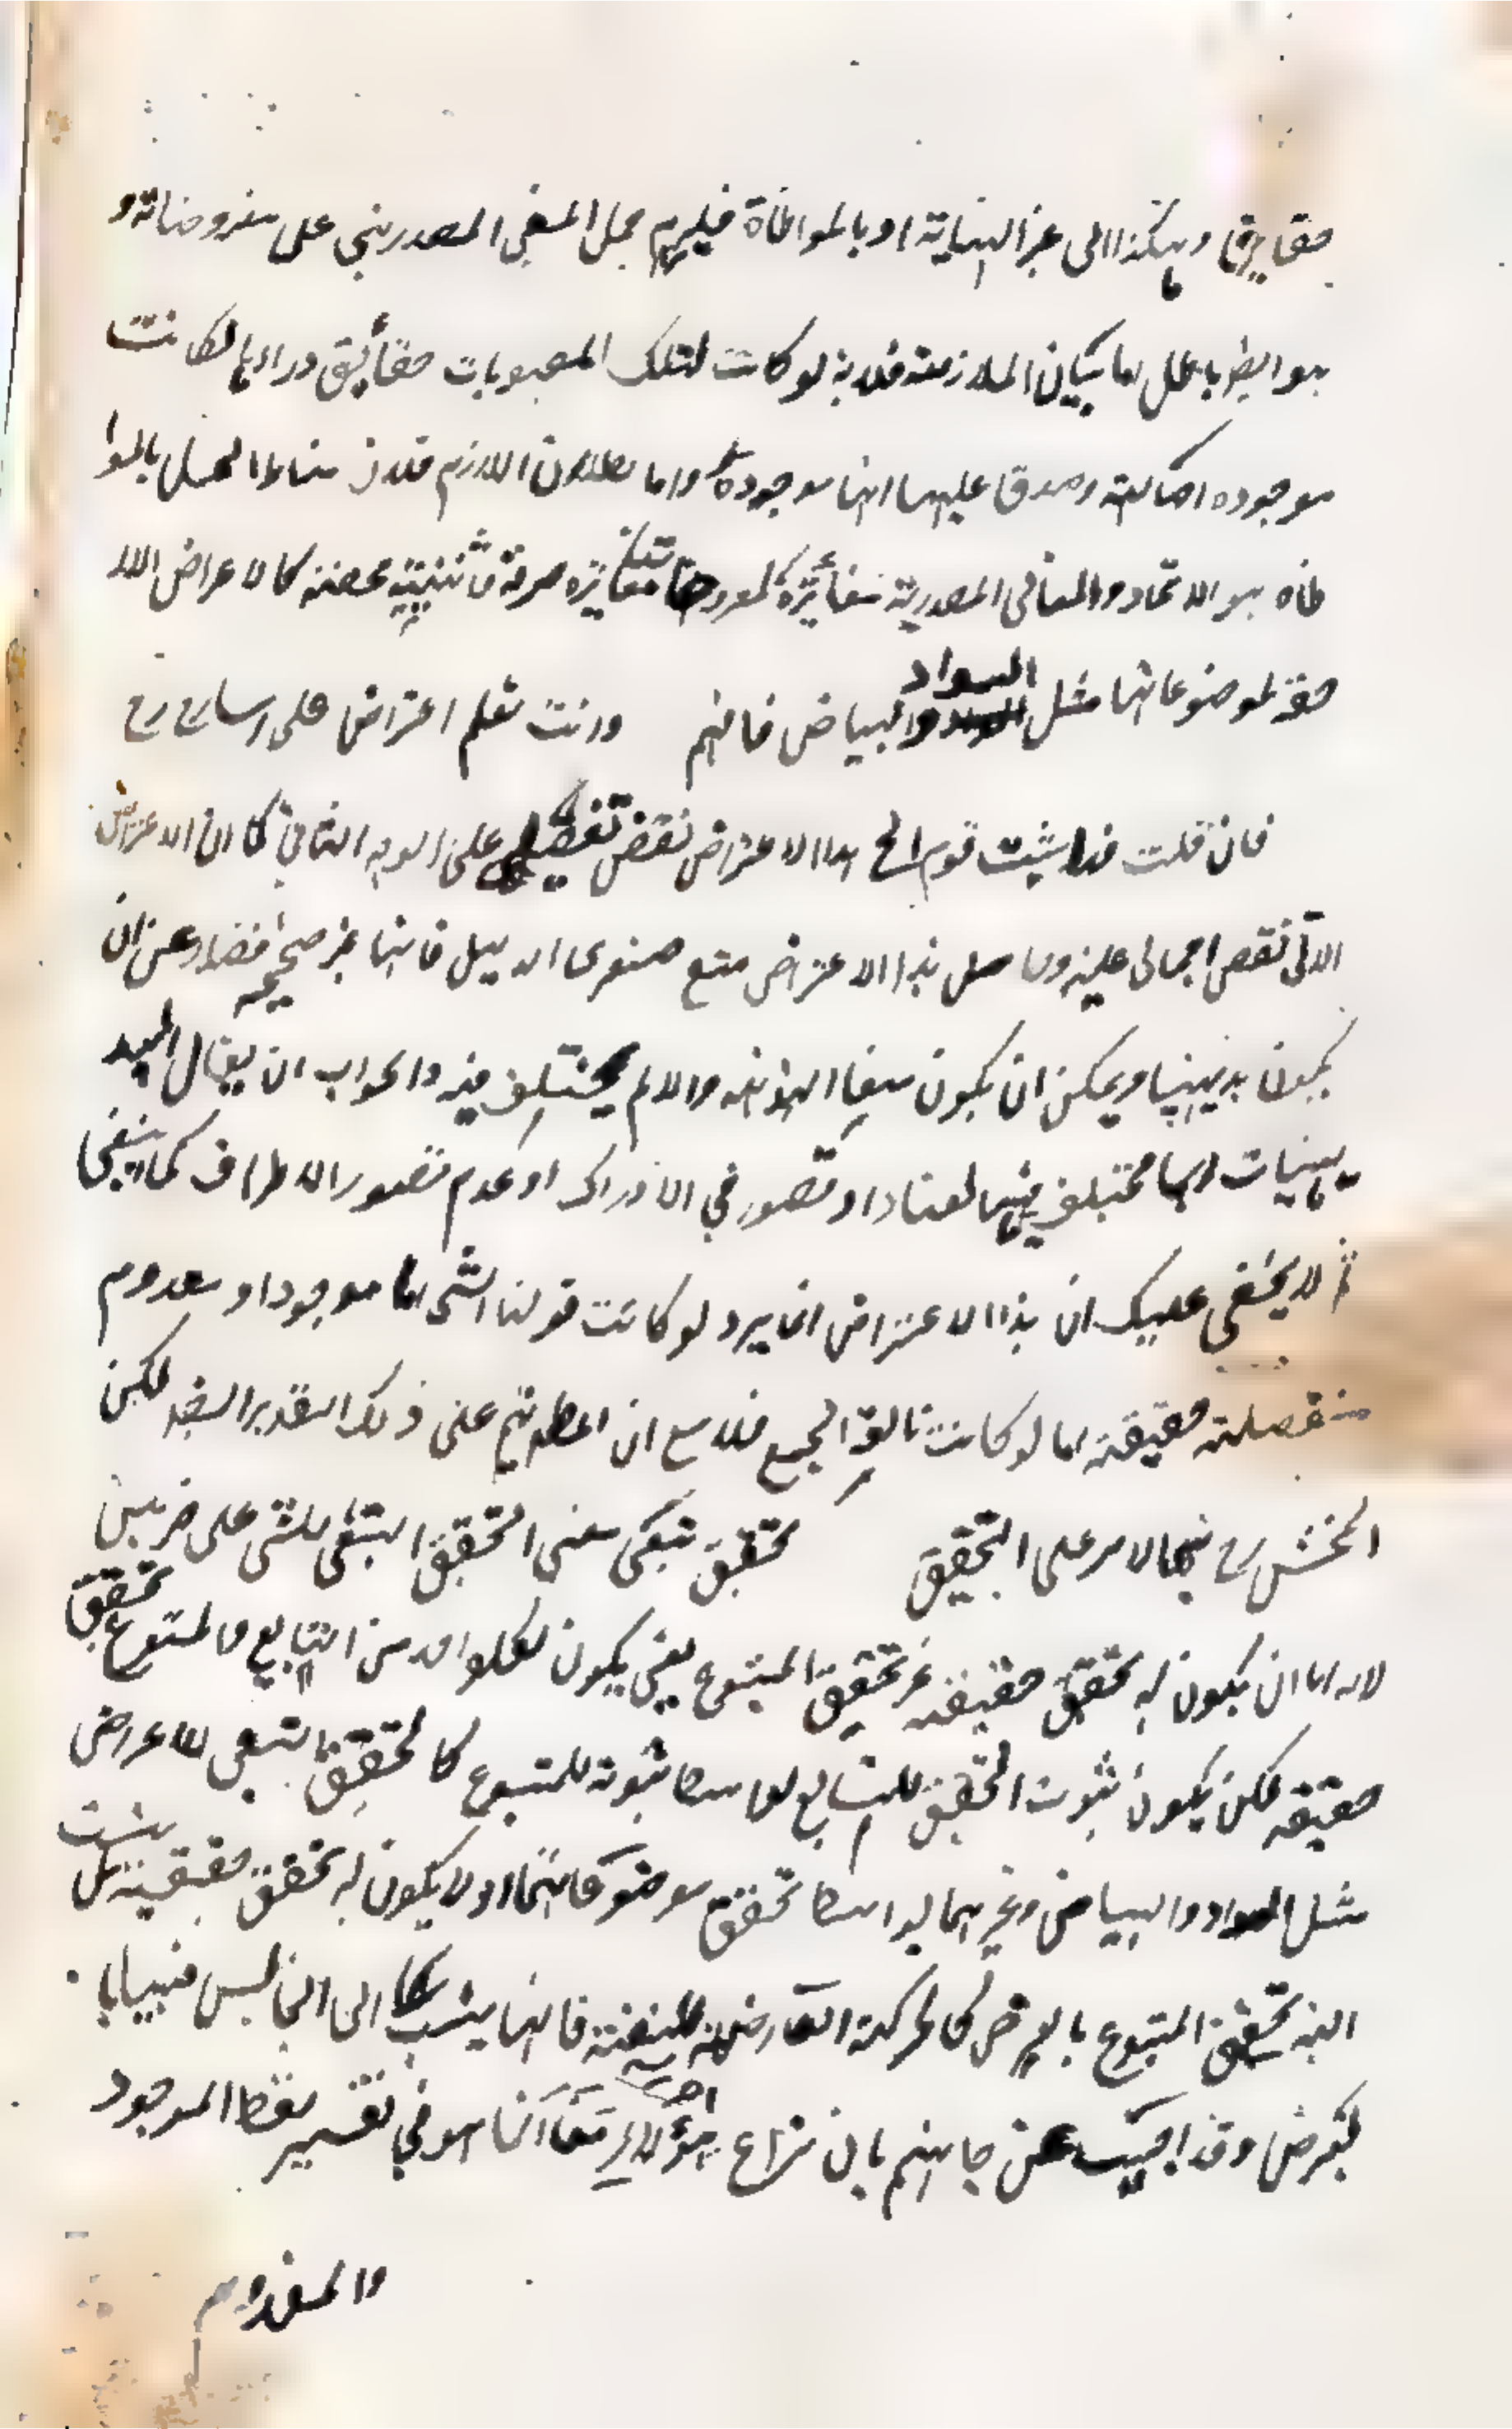 حقايق وهكذا الى غير النهاية او بالمواطاة فيلزم حمل المعنى المصدرى على معروضاته و
هو ايضا باطل اما بيان الملازمة فلانه لو كانت لتلك المفهومات حقائق وراءها لكانت
موجوده اصالة وصدق عليها انها موجودة واما بطلان اللازم فلان مناط الحمل بالموا
طاة هو الاتحاد والمعانى المصدرية مغائرة لمعروضاتها مغايرة صرفة واثنينية محضة كالاعراض اللا
حقة لموضوعاتها مثل السواد والبياض فافهم وانت تعلم اعتراض على
فان قلت قوله الخ هذا الاعتراض نقض تفصيلى على الوجه الثانى كما ان الاعتراض
الاتى نقض اجمالى عليه وحاصل هذا الاعتراض منع صغرى الدليل فانها غير صحيحة فضلا عن ان
يكون بديهيا ويمكن ان يكون والا لم يختلف فيه والجواب ان يقال البد
يهيات ربما تختلف فيها لعناد او قصور فى الادراك او عدم تصور الاطراف كما ينبغى
ثم لا يخفى عليك ان هذا الاعتراض انما يرد لو كانت قولنا الشئ اما موجود او معدوم
منفصلة حقيقة اما لو كانت مانعة الجمع فلا مع ان المط يتم على ذلك التقدير ايضا لكن
المحشى رح الامر على التحقيق تحقيق تبعى معنى التحقق التبعى للشئ على ضربين
لانه اما ان يكون له تحقق حقيقة غير تحقق المتبوع يعنى يكون لكل واحد من التابع والمتبوع تحقق
حقيقة لكن يكون ثبوت التحقق للتابع بواسطة ثبوته للمتبوع كالتحقق التبعى للاعراض
مثل السواد والبياض وغيرهما بواسطة تحقق موضوعاتهما او لا يكون له تحقق حقيقة بل ينسب
اليه تحقق المتبوع بالعرض كالحركة العارضة للسفينة فانها ينسب الى الجالس فيها با
لعرض وقد اجيب عن جانبهم بان نزاع هؤلاء معنا انما هو فى تفسير لفظ الموجود
والمعدوم